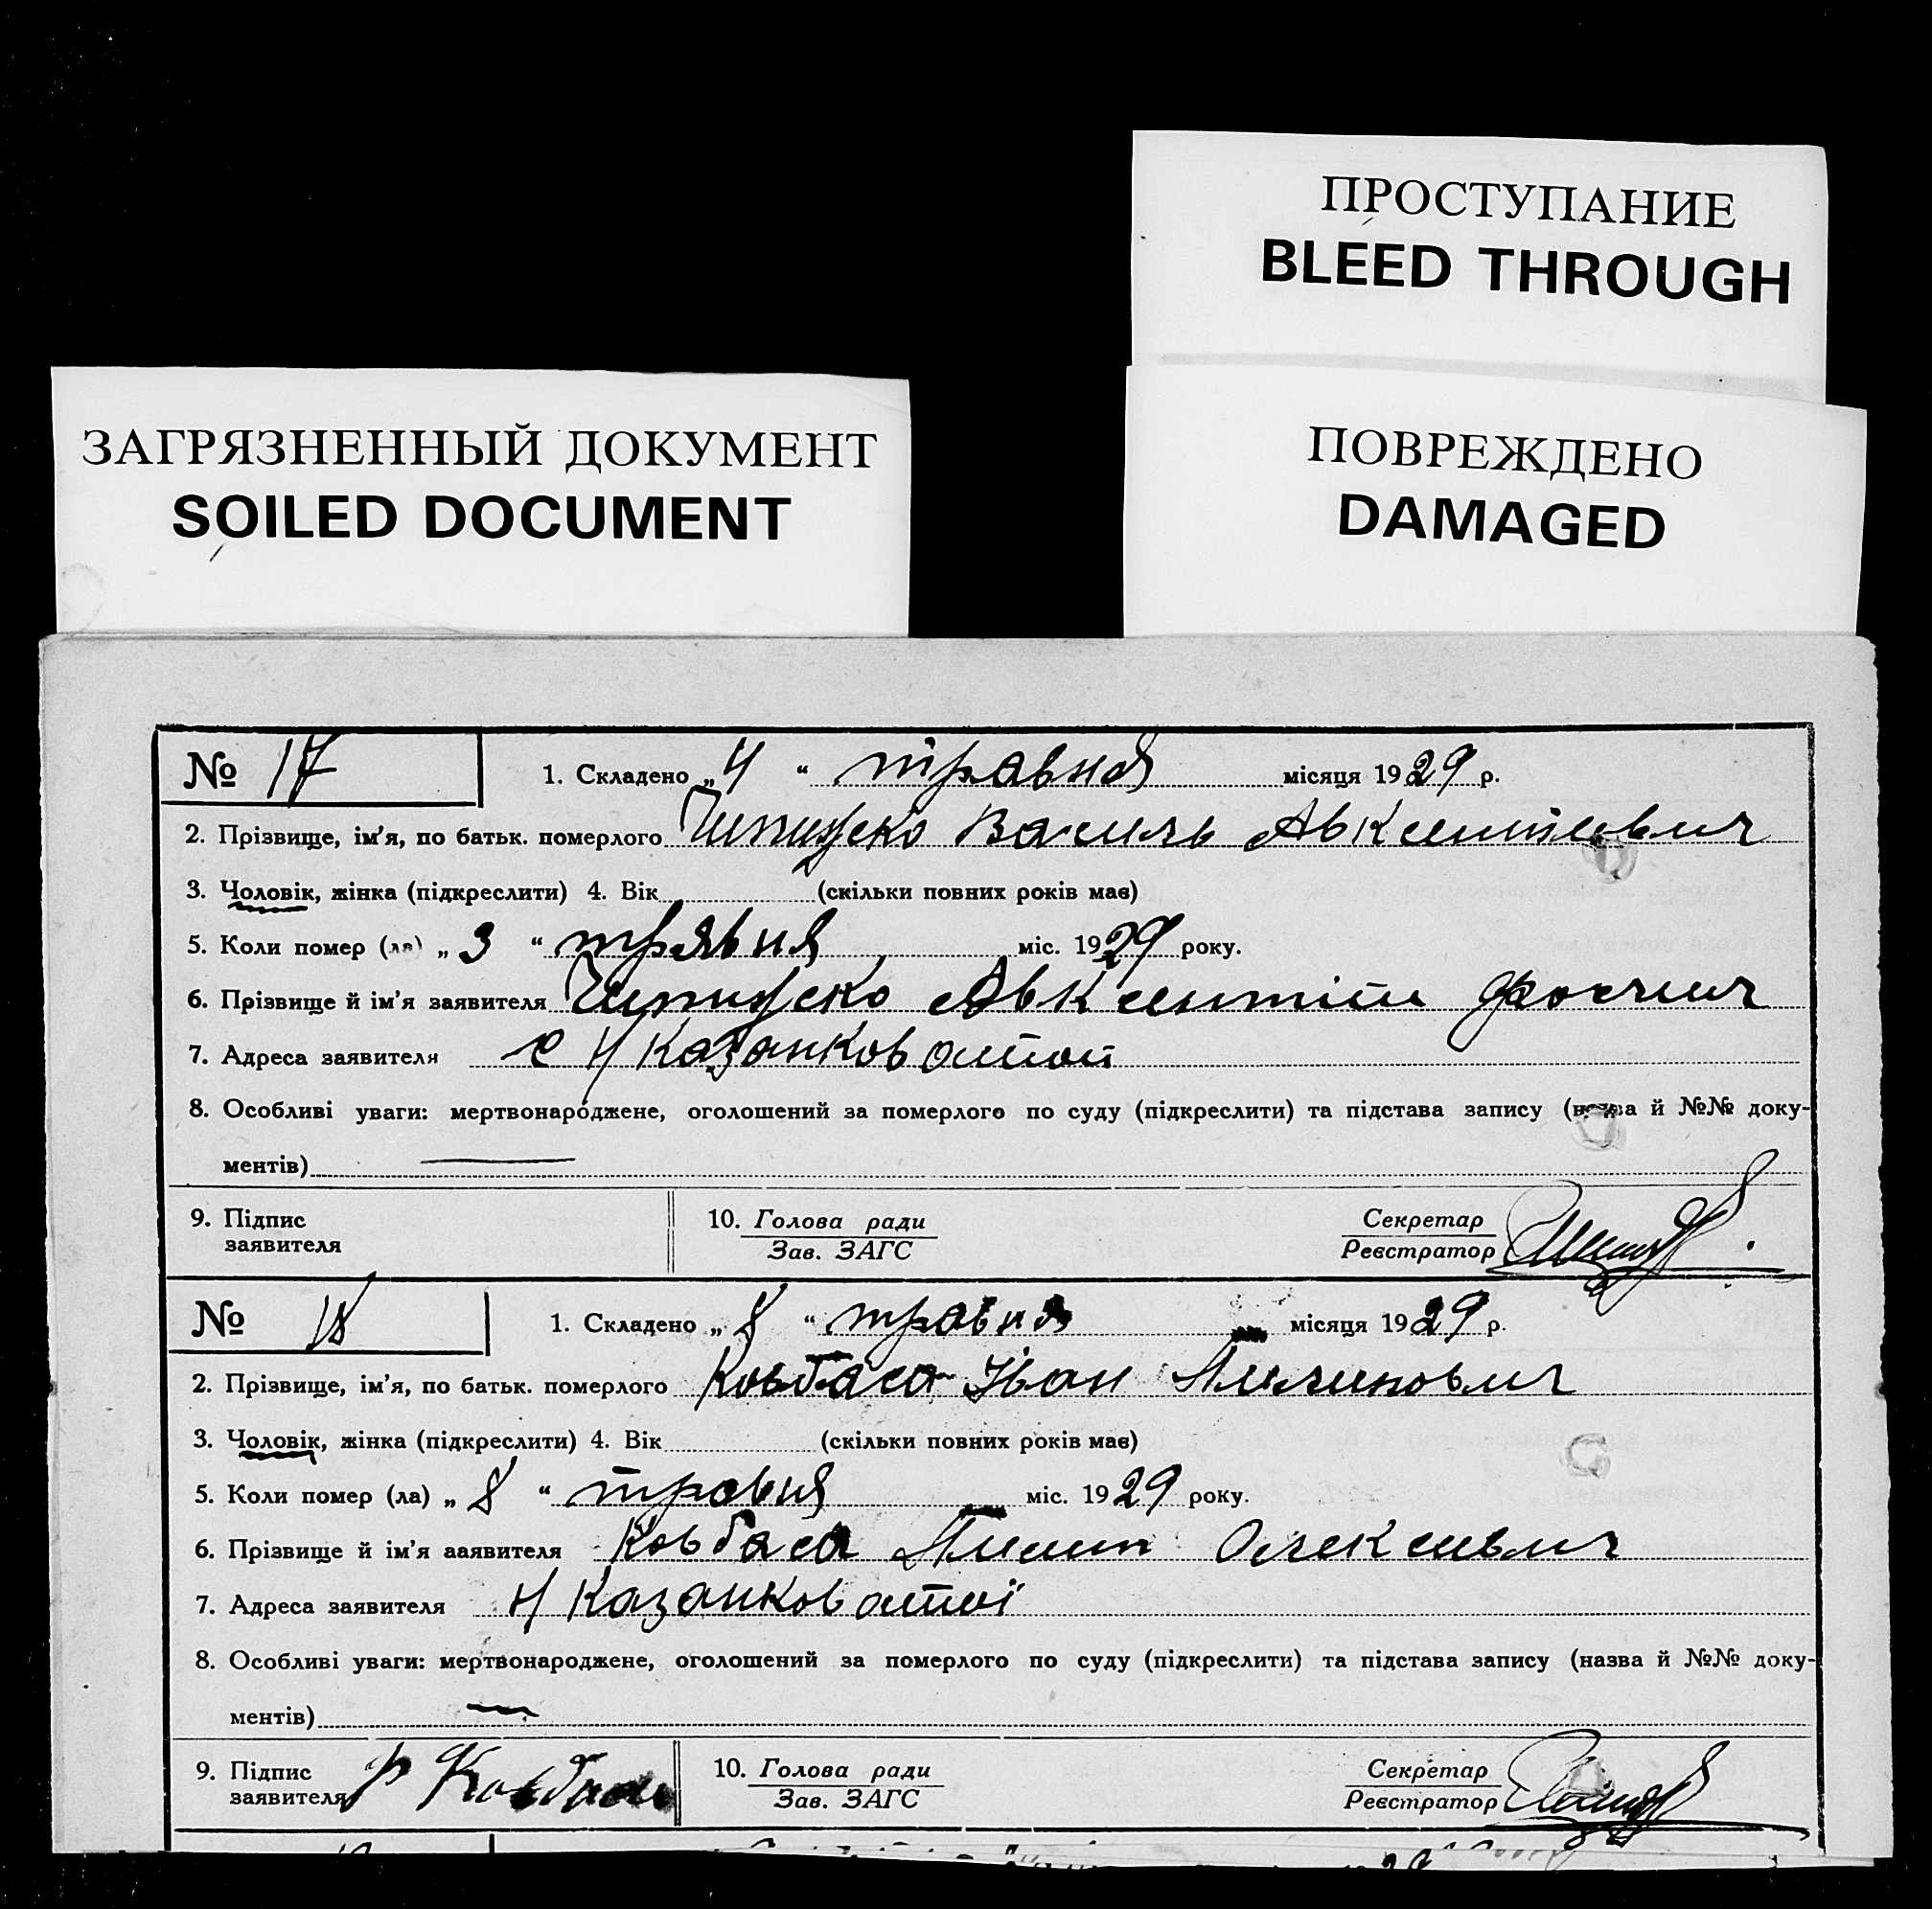 ПРОСТУПАНИЕ
BLEED THROUGH
ЗАГРЯЗНЕННЫЙ ДОКУМЕНТ
SOILED DOCUMENT
ПОВРЕЖДЕНО
DAMAGED
№ 17
1. Складено „4“ травня місяця 1929 р.
2. Прізвище, ім'я, по батьк. померлого Василь Авксентієвич
3. Чоловік, жінка (підкреслити) 4. Вік (скільки повних років має)
5. Коли помер (ла) „3“ травня міс. 1929 року.
6. Прізвище й ім'я заявителя Авксентій
7. Адреса заявителя с Н Казанковатой
8. Особливі уваги: мертвонароджене, оголошений за померлого по суду (підкреслити) та підстава запису (назва й №№ доку-
ментів)
9. Підпис
заявителя
10. Голова ради
Зав. ЗАГС
Секретар
Реєстратор
№ 18
1. Складено „8“ травня місяця 1929 р.
2. Прізвище, ім'я, по батьк. померлого Ковбаса Іван
3. Чоловік, жінка (підкреслити) 4. Вік (скільки повних років має)
5. Коли помер (ла) „8“ травня міс. 1929 року.
6. Прізвище й ім'я заявителя Ковбаса Олексієвич
7. Адреса заявителя Н Казанковатої
8. Особливі уваги: мертвонароджене, оголошений за померлого по суду (підкреслити) та підстава запису (назва й №№ доку-
ментів)
9. Підпис
заявителя Ковбаса
10. Голова ради
Зав. ЗАГС
Секретар
Реєстратор